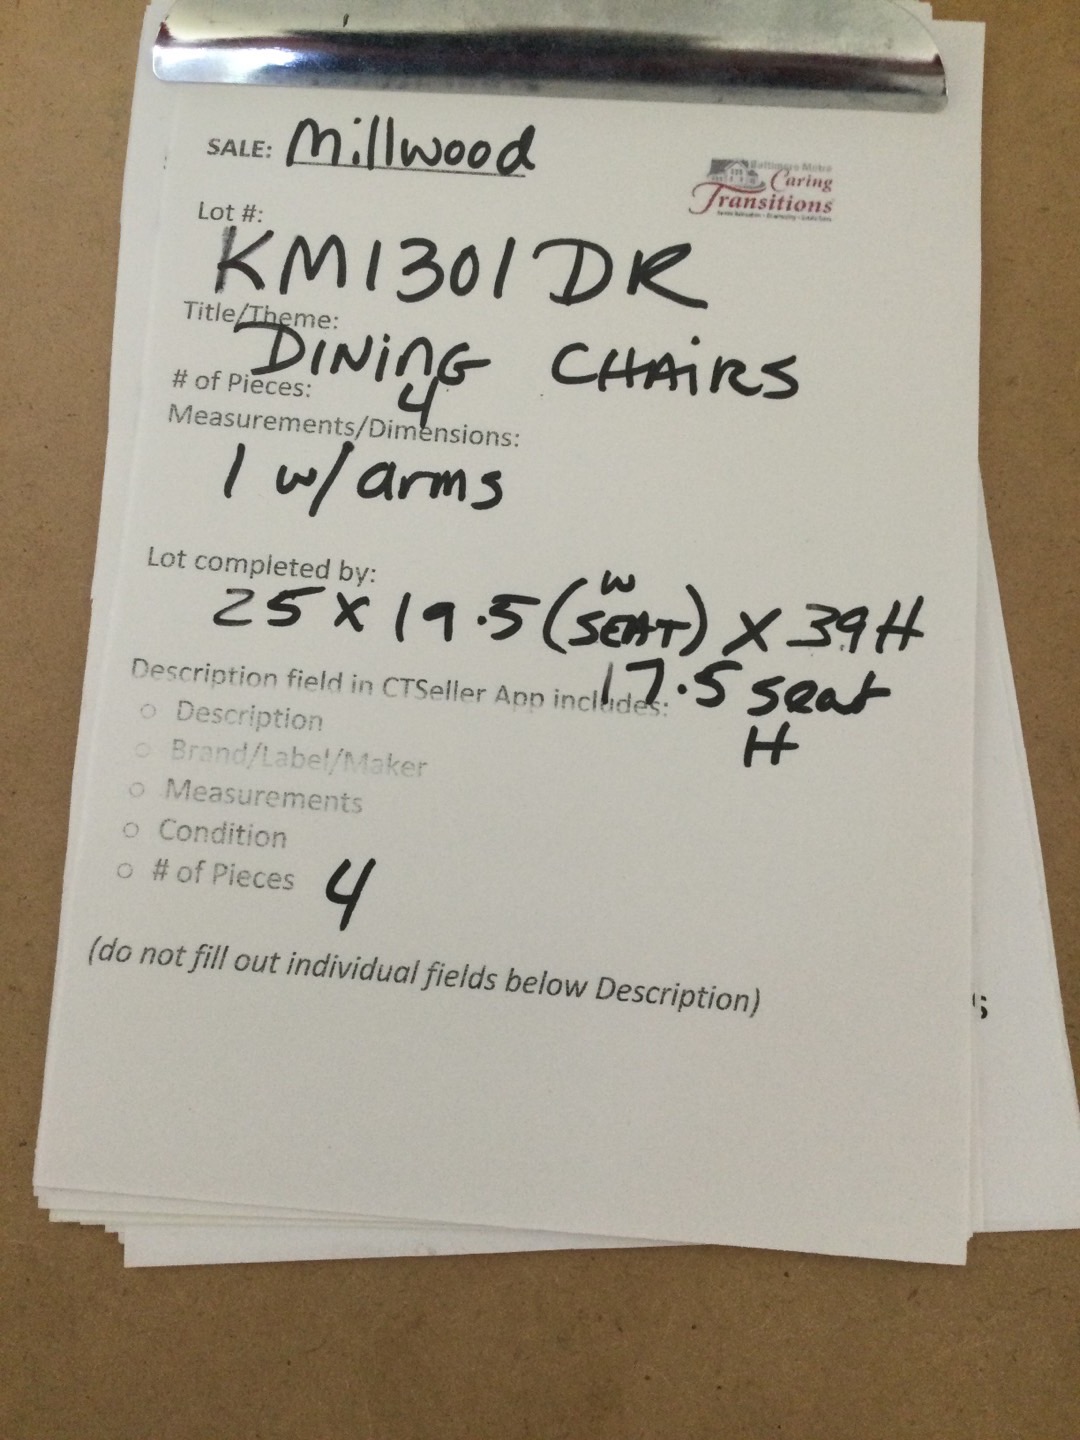 SALE: Millwood
Baltimore Metro
Caring
Transitions
Lot #:
KM1301DR
Title/Theme:
DINING CHAIRS
# of Pieces: 4
Measurements/Dimensions:
1 w/arms
Lot completed by:
25 x 19.5 (W SEAT) x 39H
17.5 seat
H
Description field in CTSeller App includes:
Description
Brand/Label/Maker
Measurements
Condition
# of Pieces 4
(do not fill out individual fields below Description)
s